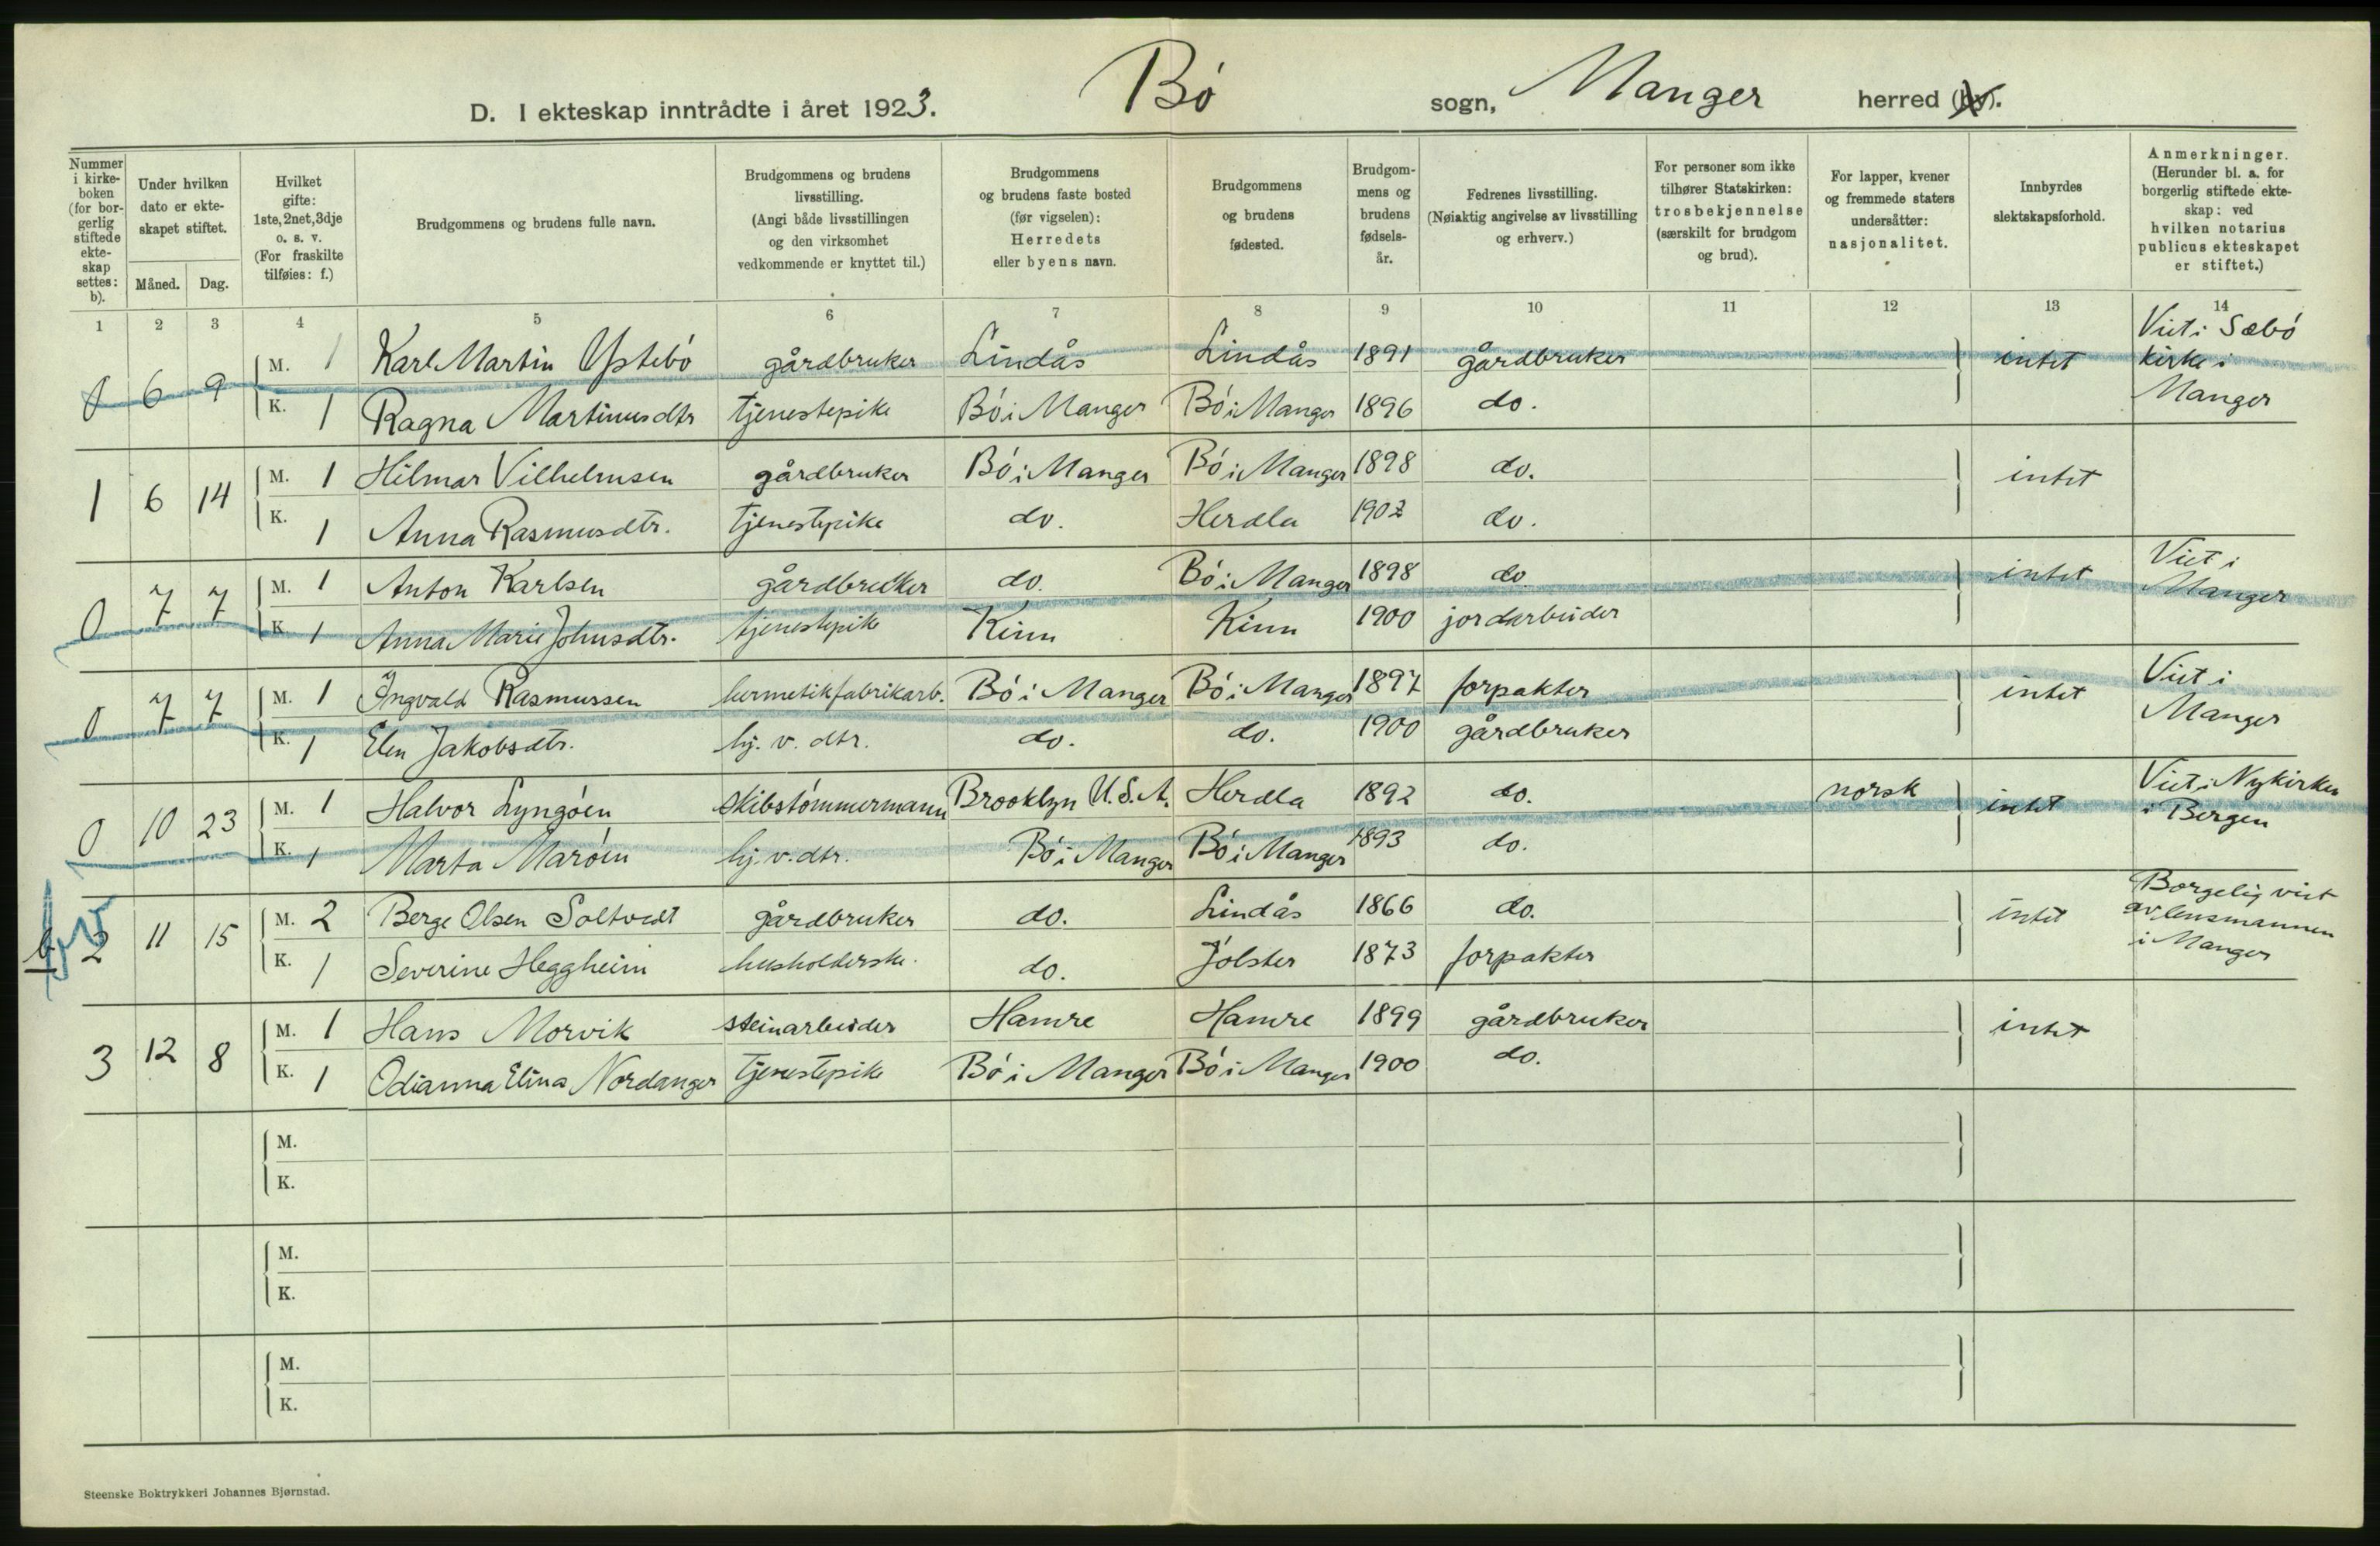 D. I ekteskap inntrådte i året 1923. Bö sogn, Manger herred (by).
Nummer i kirkeboken (for borgerlig stiftede ekteskap settes: b).
Under hvilken dato er ekteskapet stiftet.
Måned. Dag.
Hvilket gifte: 1ste, 2net, 3dje o. s. v. (For fraskilte tilføies: f.)
Brudgommens og brudens fulle navn.
Brudgommens og brudens livsstilling. (Angi både livsstillingen og den virksomhet vedkommende er knyttet til.)
Brudgommens og brudens faste bosted (før vigselen): Herredets eller byens navn.
Brudgommens og brudens fødested.
Brudgommens og brudens fødselsår.
Fedrenes livsstilling. (Nøiaktig angivelse av livsstilling og erhverv.)
For personer som ikke tilhører Statskirken: trosbekjennelse (særskilt for brudgom og brud).
For lapper, kvener og fremmede staters undersåtter: nasjonalitet.
Innbyrdes slektskapsforhold.
Anmerkninger. (Herunder bl. a. for borgerlig stiftede ekteskap: ved hvilken notarius publicus ekteskapet er stiftet.)
1 2 3 4 5 6 7 8 9 10 11 12 13 14
0 6 9 M. 1 Karl Martin Ystebö gårdbruker Lindås Lindås 1891 gårdbruker intet Viet i Sæbö kirke i Manger
K. 1 Ragna Martinusdtr tjenestepike Bö i Manger Bö i Manger 1896 do.
1 6 14 M. 1 Hilmar Vilhelmsen gårdbruker Bö i Manger Bö i Manger 1898 do. intet
K. 1 Anna Rasmusdtr. tjenestepike do. Herdla 1902 do.
0 7 7 M. 1 Anton Karlsen gårdbruker do. Bö i Manger 1898 do. intet Viet i Manger
K. 1 Anna Marie Johnsdtr. tjenestepike Kinn Kinn 1900 jordarbeider
0 7 7 M. 1 Ingvald Rasmussen hermetikfabrikarb. Bö i Manger Bö i Manger 1897 forpakter intet Viet i Manger
K. 1 Elen Jakobsdtr. hj. v. dtr. do. do. 1900 gårdbruker
0 10 23 M. 1 Halvor Lyngöen skibstömmermann Brooklyn U.S.A. Herdla 1892 do. norsk intet Viet i Nykirken i Bergen
K. 1 Marta Maröen hj. v. dtr. Bö i Manger Bö i Manger 1893 do.
b 2 11 15 M. 2 Berge Olsen Soltvedt gårdbruker do. Lindås 1866 do. intet Borgelig viet av lensmannen i Manger
K. 1 Severine Heggheim husholderske. do. Jölster 1873 forpakter
3 12 8 M. 1 Hans Morvik steinarbeider Hamre Hamre 1899 gårdbruker intet
K. 1 Odianna Elina Nordanger tjenestepike Bö i Manger Bö i Manger 1900 do.
M.
K.
M.
K.
M.
K.
Steenske Boktrykkeri Johannes Bjørnstad.